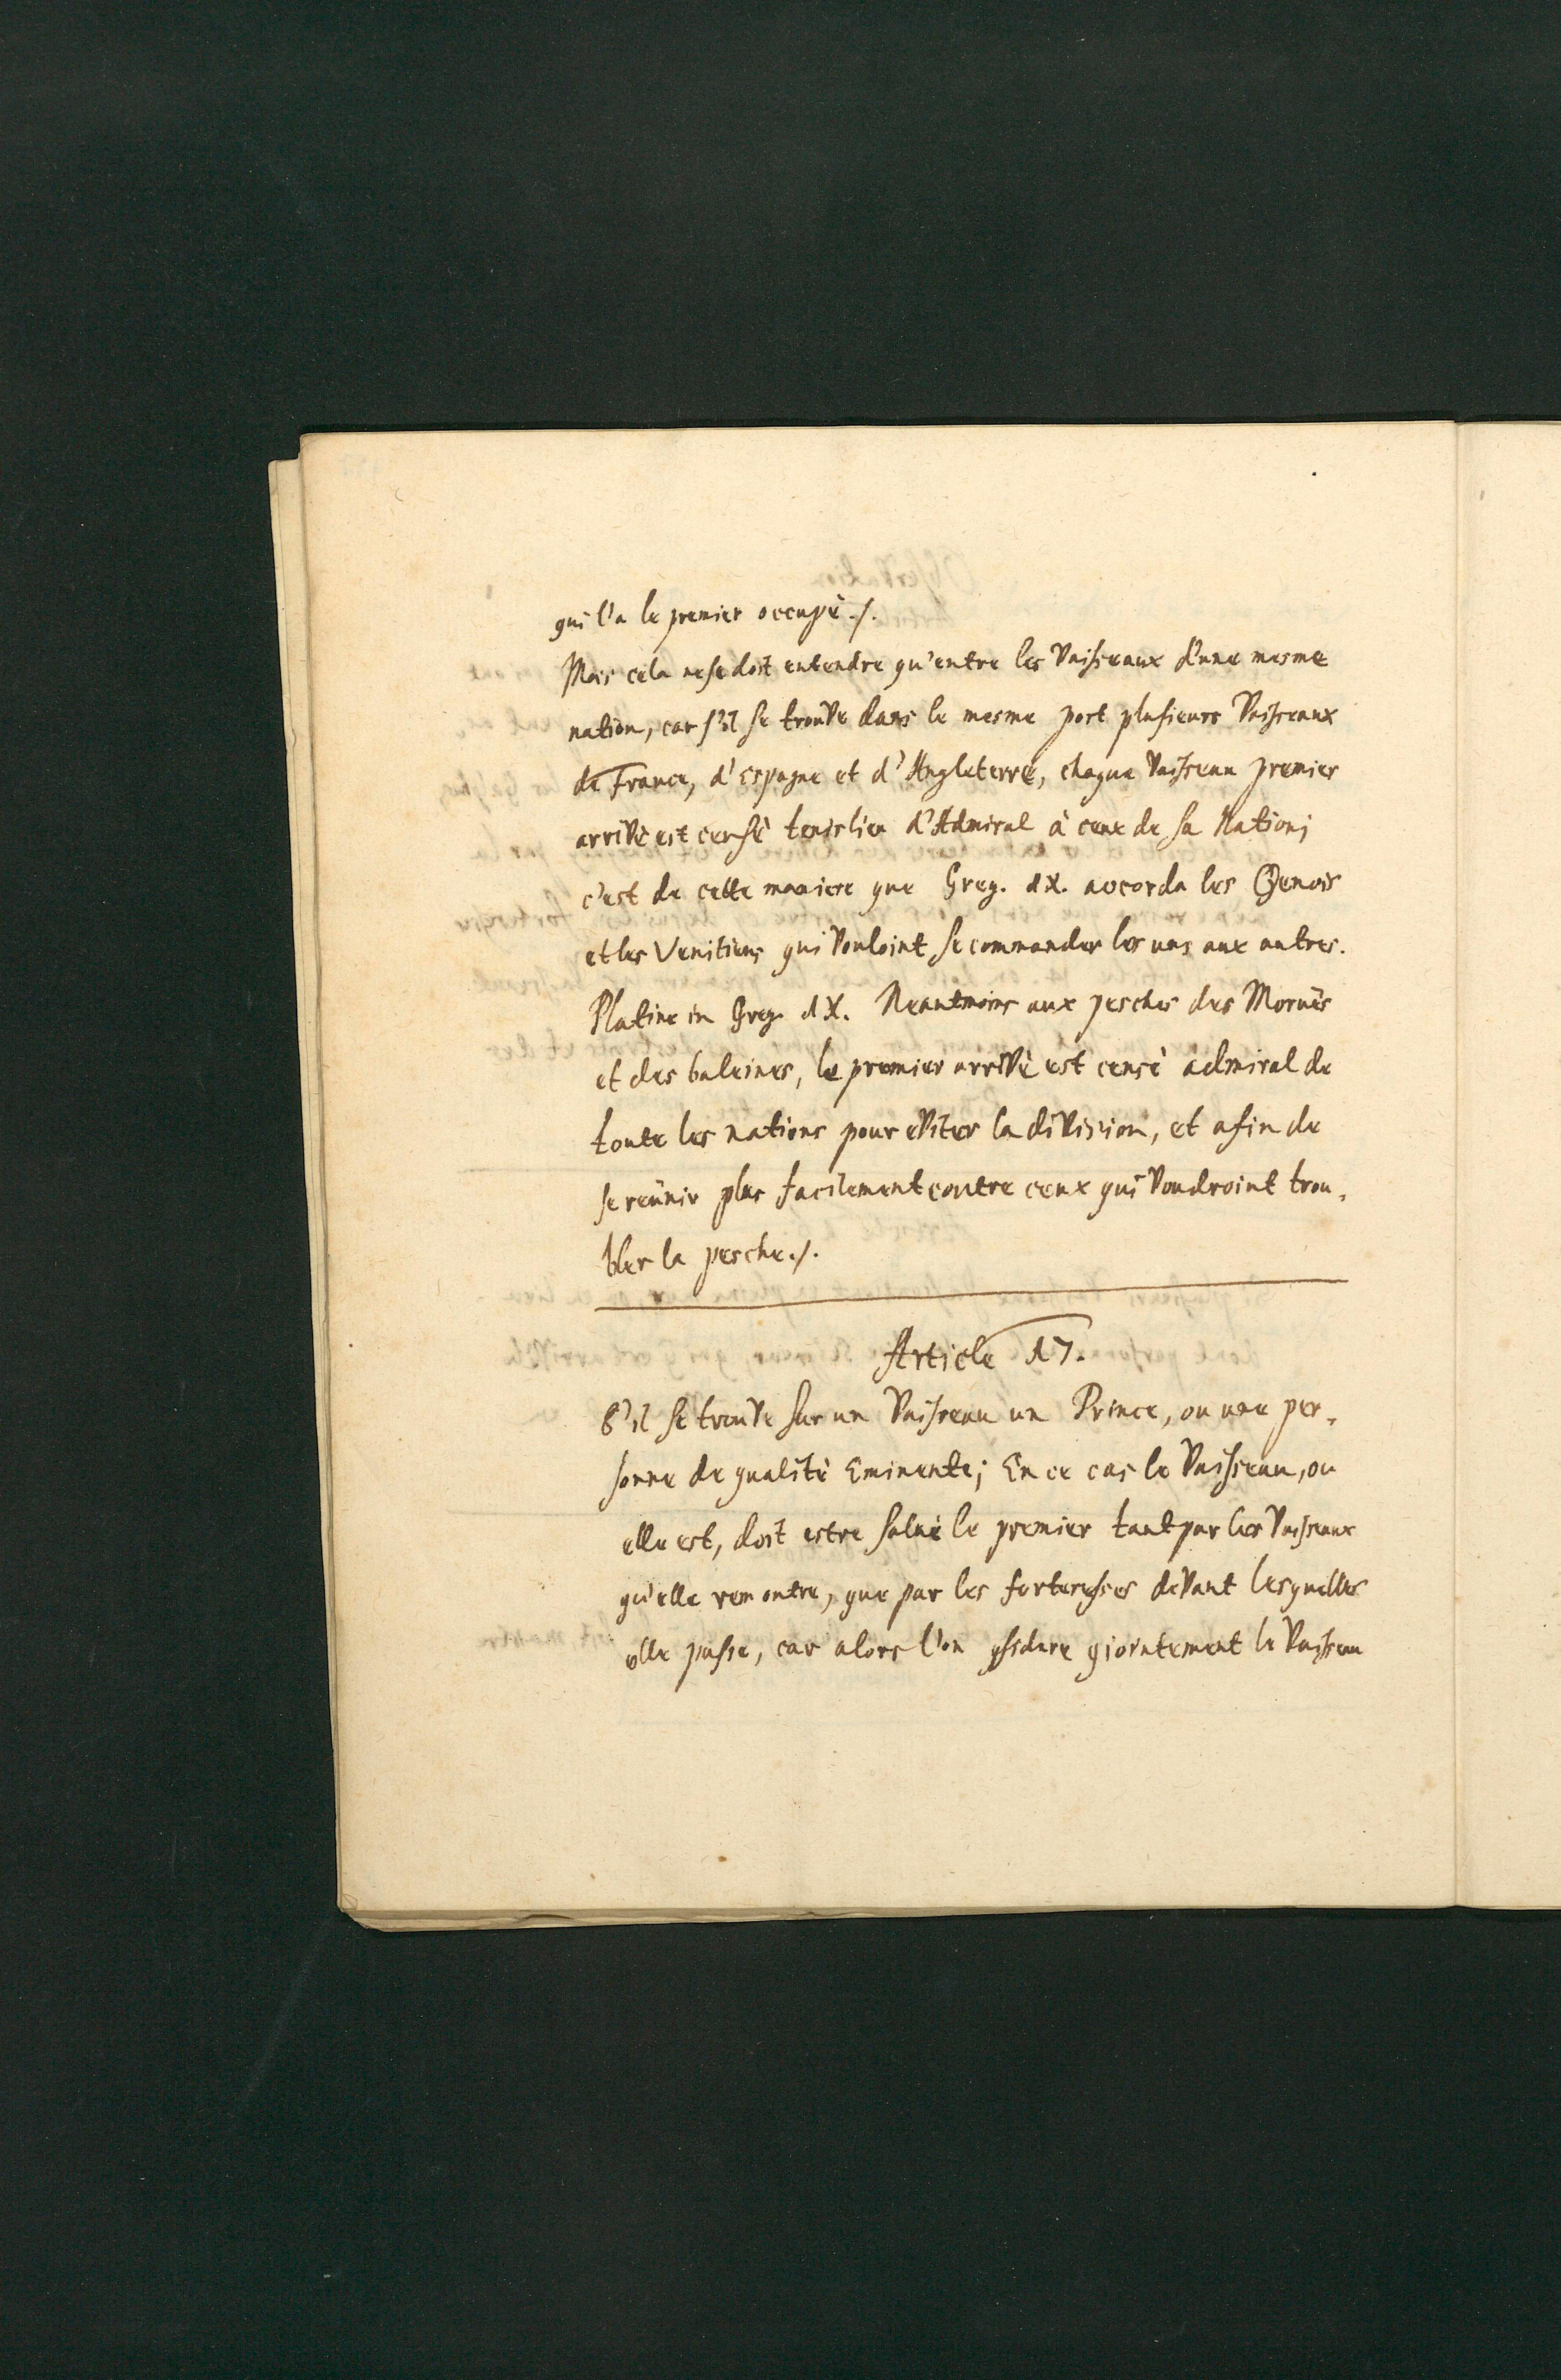 qui l'a le premier occupè./.
Mais cela ne se doit entendre qu'entre les Vaisseaux d'une mesme
nation, car s'il se trouve dans le mesme port plusieurs Vaisseaux
de France, d'Espagne et d'Angleterre, chaque Vaisseau premier
arrivè est censè tenir lieu d'Admiral à ceux de sa Nation;
c'est de cette maniere que Greg. IX. accorda les Genois
et les Venitiens qui Vouloint se commander les uns aux autres.
Platine in Greg. IX. Neantmoins aux pesches des Moruës
et des baleines, le premier arrivè est censè admiral de
toute les nations pour eviter la division, et afin de
se reünir plus facilement contre ceux qui Voudroint trou-
bler la pesche./.
Article 17.
S'il se trouve sur un Vaisseau un Prince, ou une per-
sonne de qualitè Eminente; En ce cas le Vaisseau, ou
elle est, doit estre saluè le premier tant par les Vaisseaux
qu'elle remontre, que par les forteresses devant lesquelles
elle passe, car alors l'on le Vaisseau